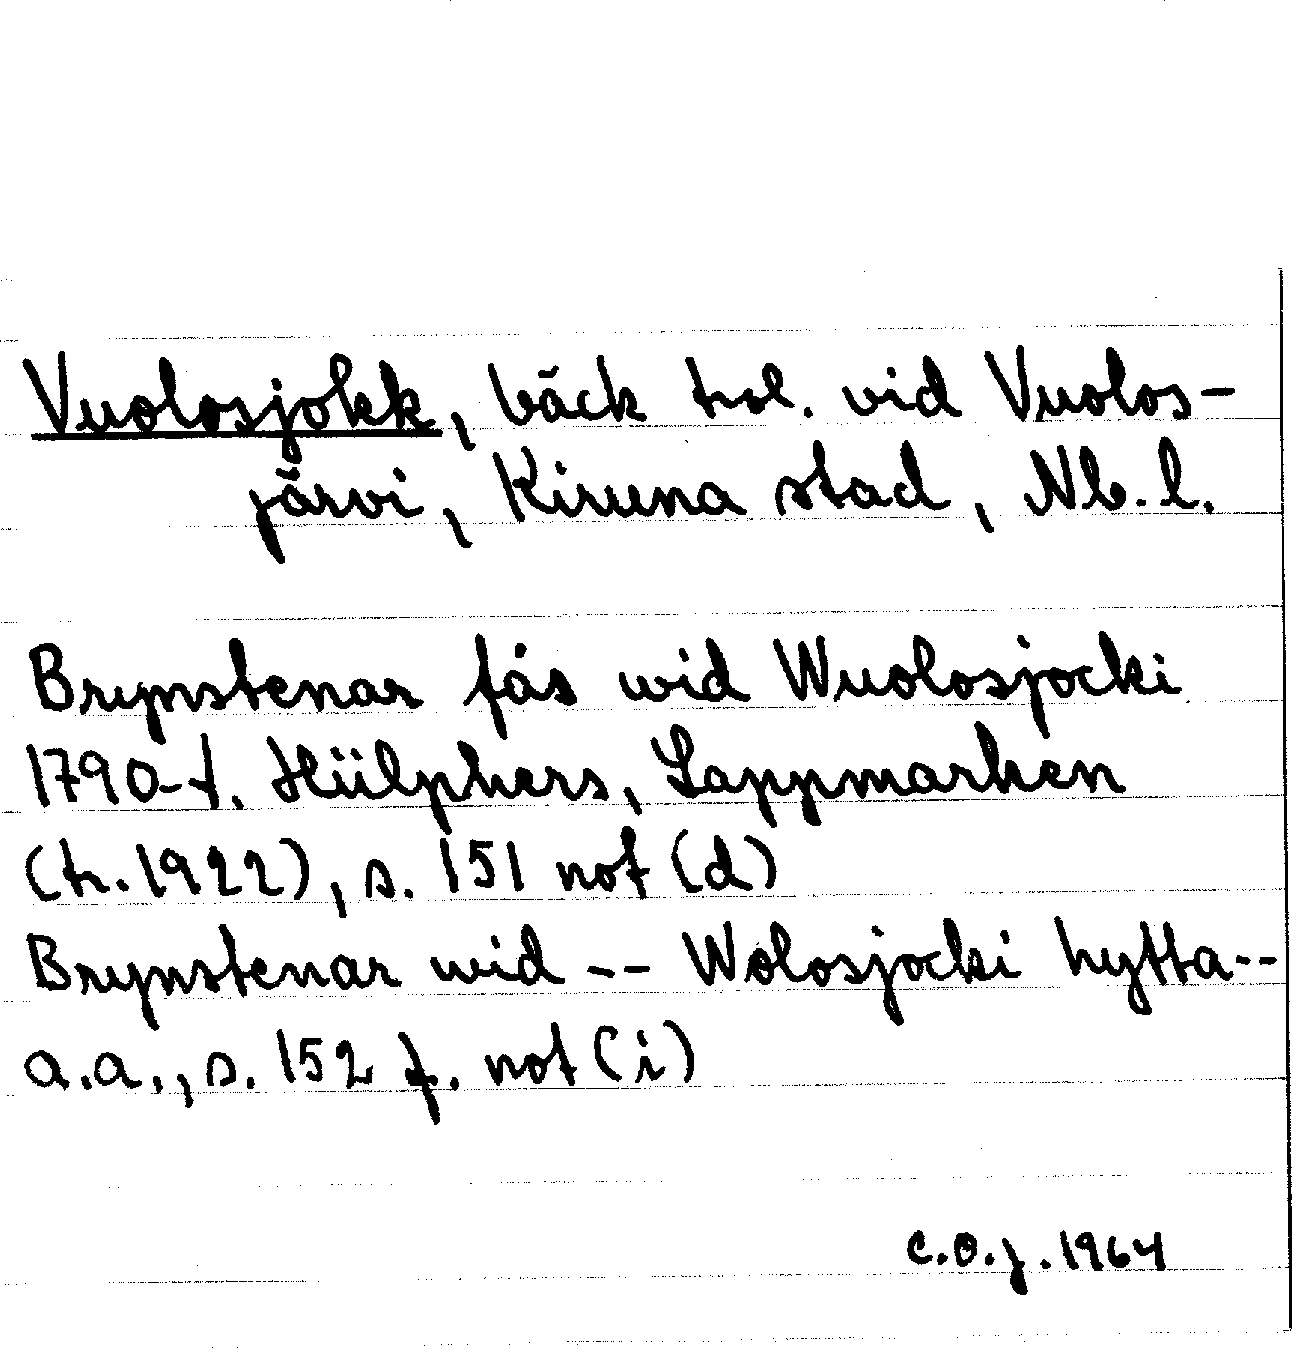 Vuolosjokk, bäck trol. vid Vuolos-
järvi, Kiruna stad, Nb. l.
Brynstenar fås wid Wuolosjocki
1790-t. Hülphers, Lappmarken
(tr. 1922), s. 151 not (d)
Brynstenar wid -- Wolosjocki hytta--
a.a., s. 152 f. not (i)
C.O.J. 1964